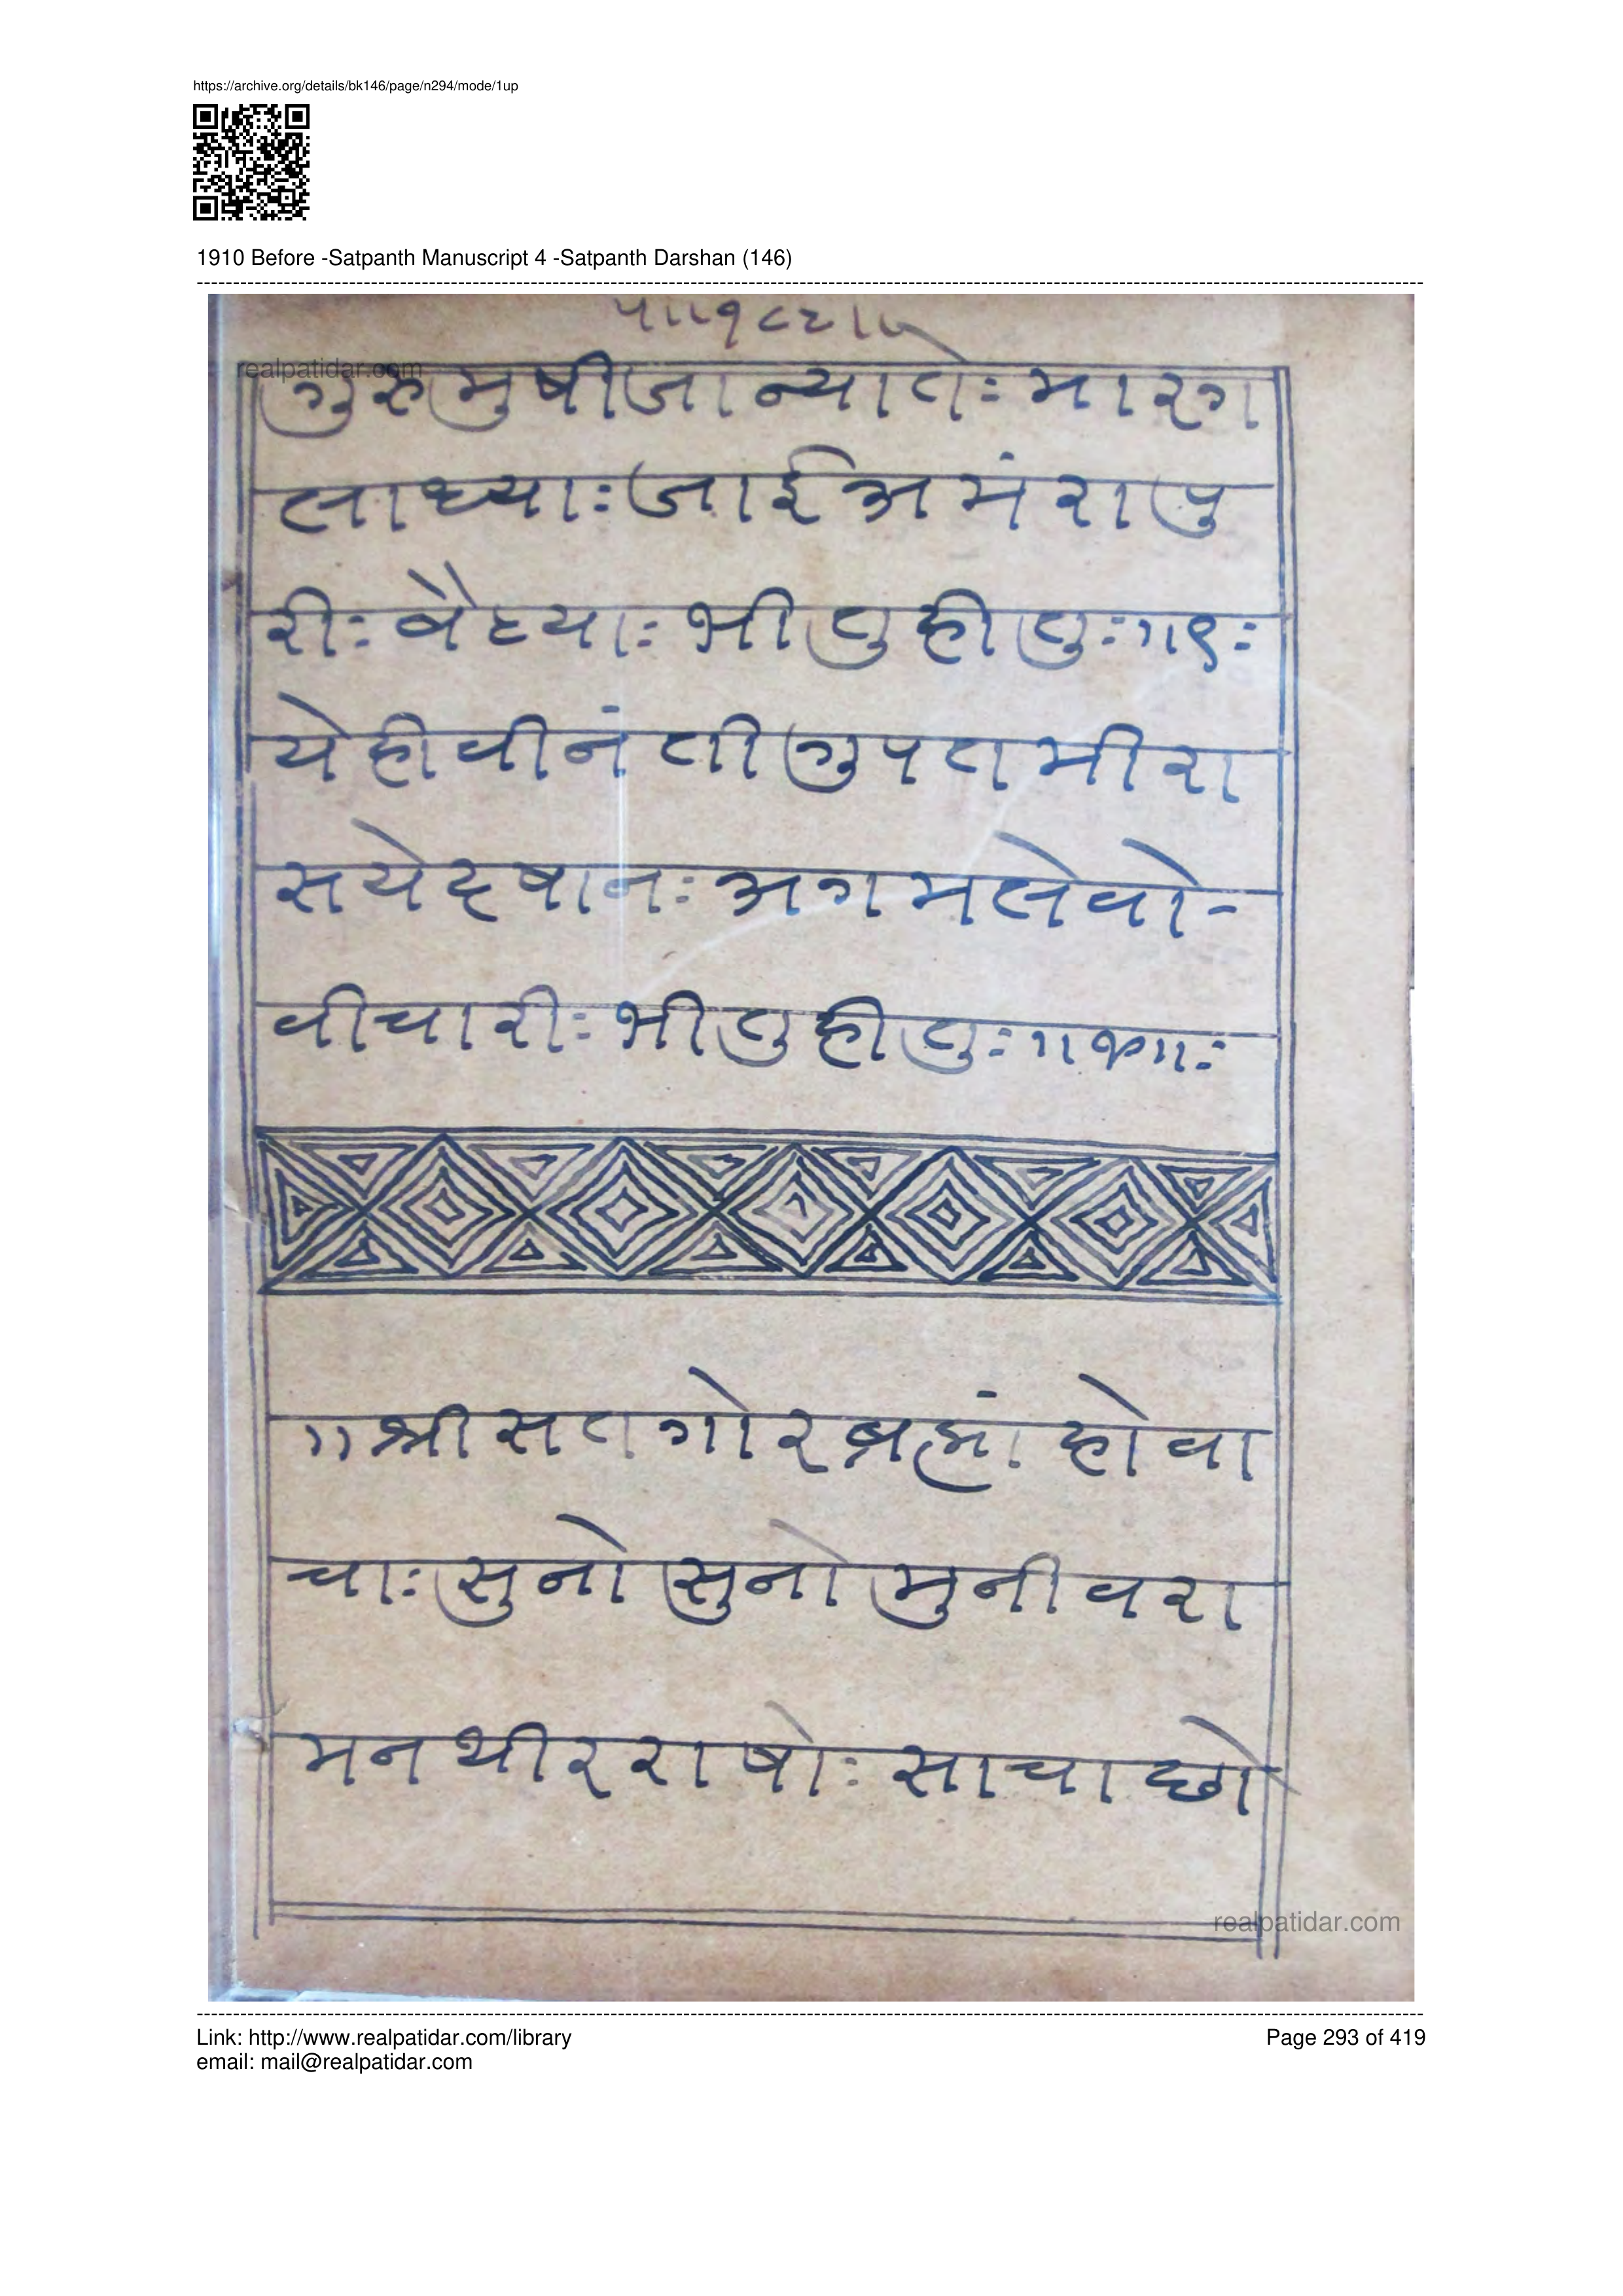 https://archive.org/details/bk146/page/n294/mode/1up
1910 Before -Satpanth Manuscript 4 -Satpanth Darshan (146)
realpatidar.com
गुरुमुषीजान्याते: मारग
लाध्या: जाईअमंरापु
री: बैठ्या: भीतुहीतु:
येहीवीनंतीगुपतमीरा
सयेदषान: अगमलेवो-
वीचारी: भीतुहीतु:
॥श्रीसतगोरब्रह्मांहोवा
चा: सुनोसुनोमुनीवरा
मनथीरराषो: साचाछो
realpatidar.com
Link: http://www.realpatidar.com/library
Page 293 of 419
email: mail@realpatidar.com